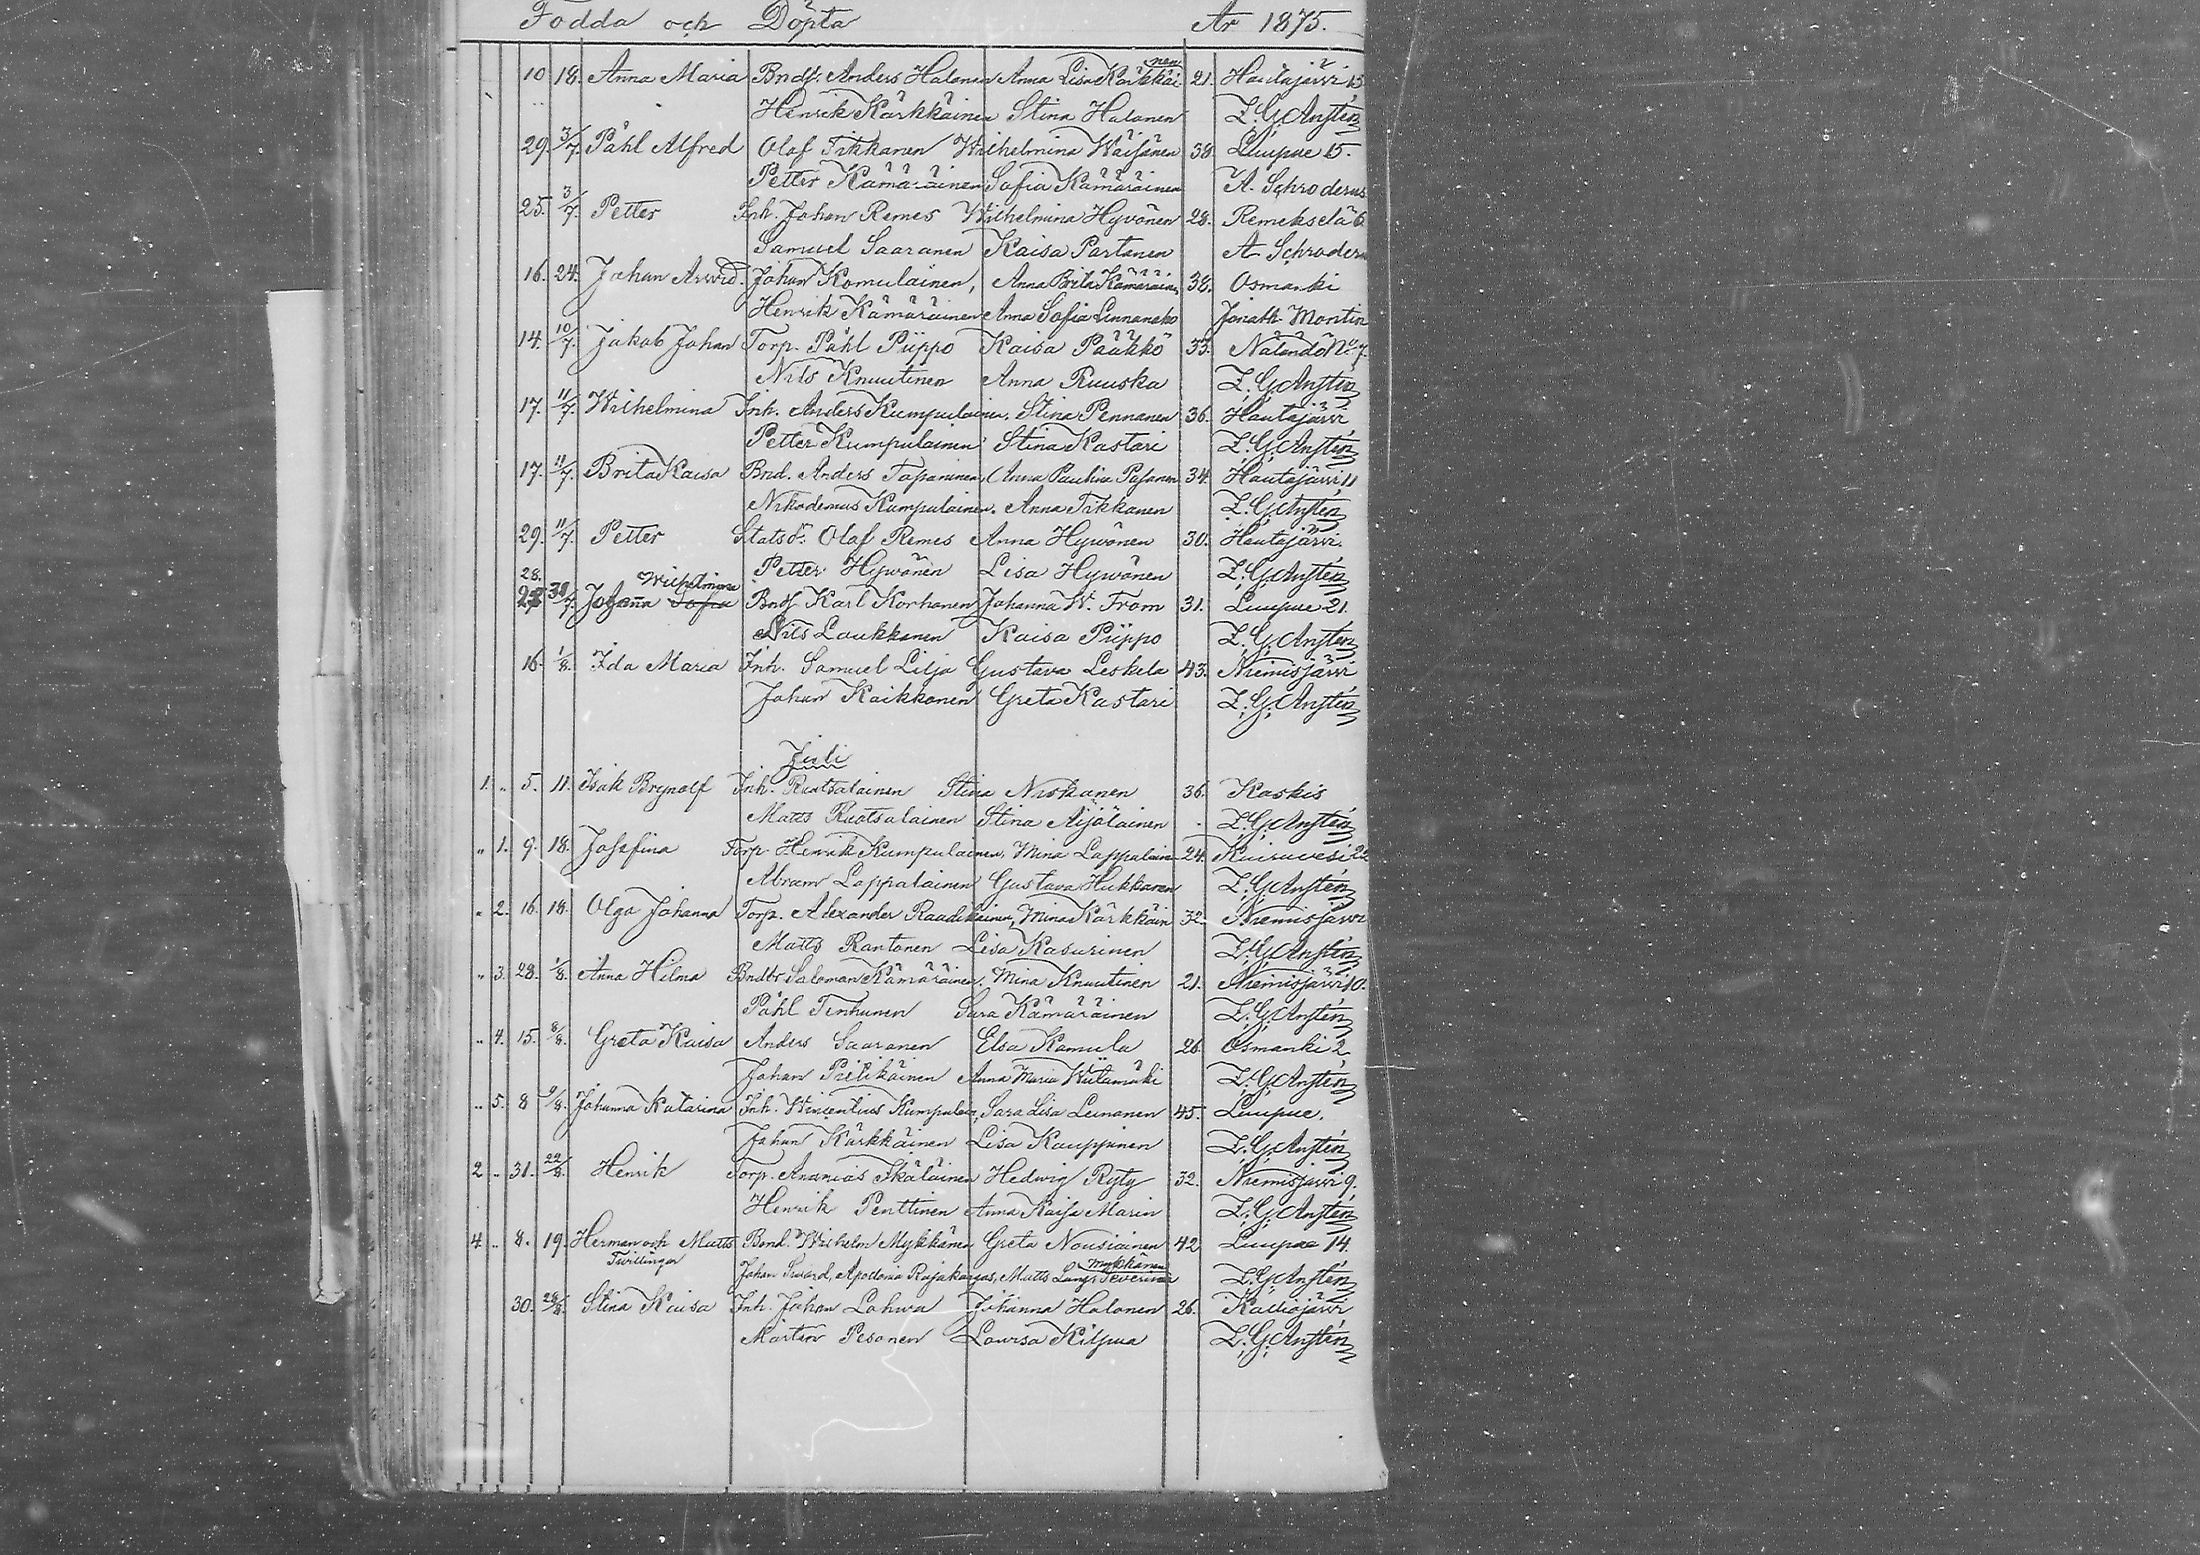 Födda och Döpta År 1875.
10 18. Anna Maria Bndf. Anders Halonen Anna Lisa Kärkkäinen 21. Hautajärvi 13
Henrik Kärkkäinen Stina Halonen Z. G. Anstén
29. 3/7. Påhl Alfred Olof Tikkanen Wilhelmina Wäisänen 38 Luupue 15.
Petter Kämäräinen Sofia Kämäräinen A. Schroderus
25. 3/7. Petter Inh. Johan Remes Wilhelmina Hyvönen 28. Remekselä 6
Samuel Saaranen Kaisa Partanen A. Schroderu
16. 24. Johan Arwid. Johan Komulainen, Anna Brita Kämäräinen 38. Osmanki
Henrik Kämäräinen Anna Sofia Linnanaho Jonath. Montin
14. 10/7. Jakob Johan Torp. Påhl Piippo Kaisa Pääkkö 33. Näländö No 7.
Nils Knuutinen Anna Ruuska Z. G. Anstén
17. 11/7. Wilhelmina Inh. Anders Kumpulainen, Stina Pennanen 36. Hautajärvi
Petter Kumpulainen Stina Kastari Z. G. Anstén
17. 11/7. Brita Kaisa Bnd. Anders Tapaninen, Anna Paulina Pajanen 34. Hautajärvi 11
Nikodemus Kumpulainen. Anna Tikkanen Z. G. Anstén
29. 11/7. Petter Statsdr. Olof Remes Anna Hyvönen 30. Hautajärvi.
Petter Hyvönen Lisa Hyvönen Z. G. Anstén
28. Wilhelmina
27 30/7. Johanna Sofia Bndf Karl Korhonen Johanna W. From 31. Luupue 21.
Nils Laukkanen Kaisa Piippo Z. G. Anstén
16. 1/8. Ida Maria Inh. Samuel Lilja Gustava Leskela 43. Niemisjärvi
Johan Kaikkonen Greta Kastari Z. G. Anstén
Juli
1. " 5. 11. Isak Brynolf Inh. Ruotsalainen Stina Niskanen 36. Koskis
Matts Ruotsalainen Stina Äijäläinen Z. G. Anstén
" 1. 9. 18. Josefina Torp. Henrik Kumpulainen, Mina Lappalain 24. Kiuruvesi 22
Abram Lappalainen Gustava Hukkanen Z. G. Anstén
" 2. 16. 18. Olga Johanna Torp. Alexander Raudikainen, Mina Kärkkäin 32. Niemisjärvi
Matts Rantonen Lisa Kasurinen Z. G. Anstén
" 3. 28. 1/8. Anna Hilma Bndbr Saloman Kämäräinen. Mina Knuutinen 21. Niemisjärvi 10.
Påhl Tenhunen Sara Kämäräinen Z. G. Anstén
" 4. 15. 8/8. Greta Kaisa Anders Saaranen Elsa Kamula 26 Osmanki 2
Johan Pielikäinen Anna Maria Wiitamäki Z. G. Anstén
" 5. 8 9/8. Johanna Katarina Inh. Wincentius Kumpulain, Sara Lisa Leinonen 45. Luupue.
Johan Kärkkäinen Lisa Kauppinen Z. G. Anstén
2 " 31. 22/8. Henrik Torp. Ananias Ikäläinen Hedwig Ryty 32. Niemisjärvi 9.
Henrik Penttinen Anna Kaisa Marin Z. G. Anstén
4 " 8. 19. Herman och Matts Bond. Wilhelm Mykkänen Greta Nousiainen 42 Luupue 14.
Tvillingar Johan Sward, Apollonia Rajakangas, Matts Mykkänen Severina Z. G. Anstén
30. 28/8. Stina Kaisa Inh. Johan Lahwa Johanna Halonen 26. Kalliojärvi
Mårten Pesonen Lowisa Kilpua Z. G. Anstén